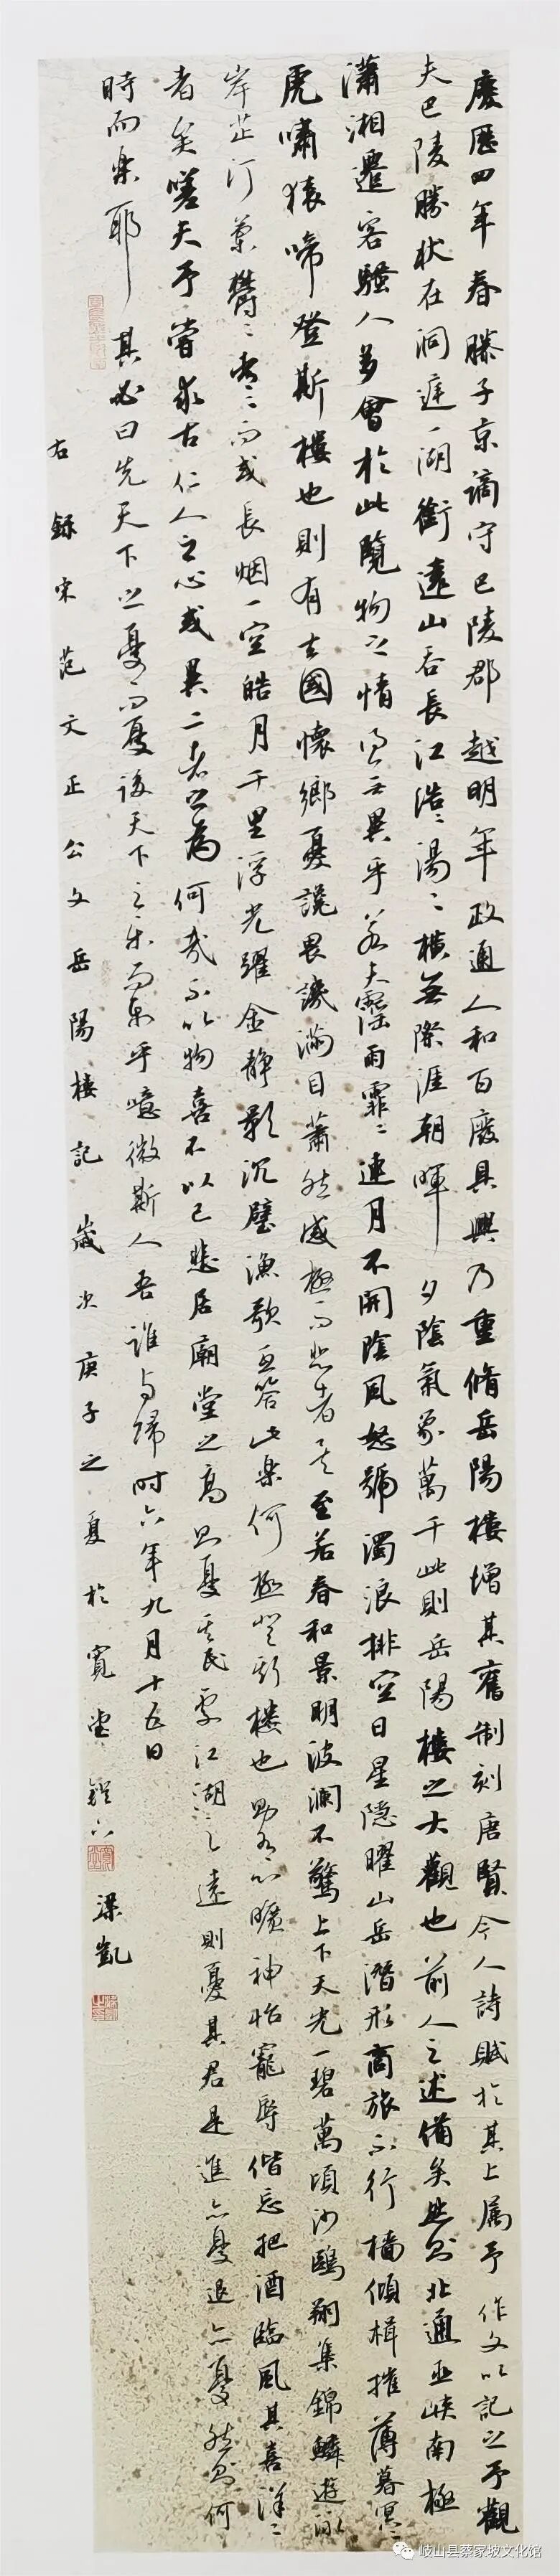 慶歷四年春滕子京謫守巴陵郡越明年政通人和百廢具興乃重脩岳陽樓增其舊制刻唐賢今人詩賦於其上属予作文以記之予觀
夫巴陵勝狀在洞庭一湖銜遠山吞長江浩〻湯〻橫無際涯朝暉夕陰氣象萬千此則岳陽樓之大觀也前人之述備矣然則北通巫峽南極
瀟湘遷客騷人多會於此覽物之情得無異乎若夫霪雨霏〻連月不開陰風怒號濁浪排空日星隱曜山岳潛形商旅不行檣傾楫摧薄暮冥〻
虎嘯猿啼登斯樓也則有去國懷鄉憂讒畏譏滿目蕭然感極而悲者矣至若春和景明波瀾不驚上下天光一碧萬頃沙鷗翔集錦鱗遊泳
岸芷汀蘭鬱〻青〻而或長烟一空皓月千里浮光躍金靜影沉璧漁歌互答此樂何極登斯樓也則有心曠神怡寵辱偕忘把酒臨風其喜洋〻
者矣嗟夫予嘗求古仁人之心或異二者之為何哉不以物喜不以己悲居廟堂之高則憂其民處江湖之遠則憂其君是進亦憂退亦憂然則何
時而樂耶其必曰先天下之憂而憂後天下之樂而樂乎噫微斯人吾誰與歸時六年九月十五日
右錄宋范文正公文岳陽樓記歲次庚子之夏於寬堂 梁凱
岐山县蔡家坡文化馆